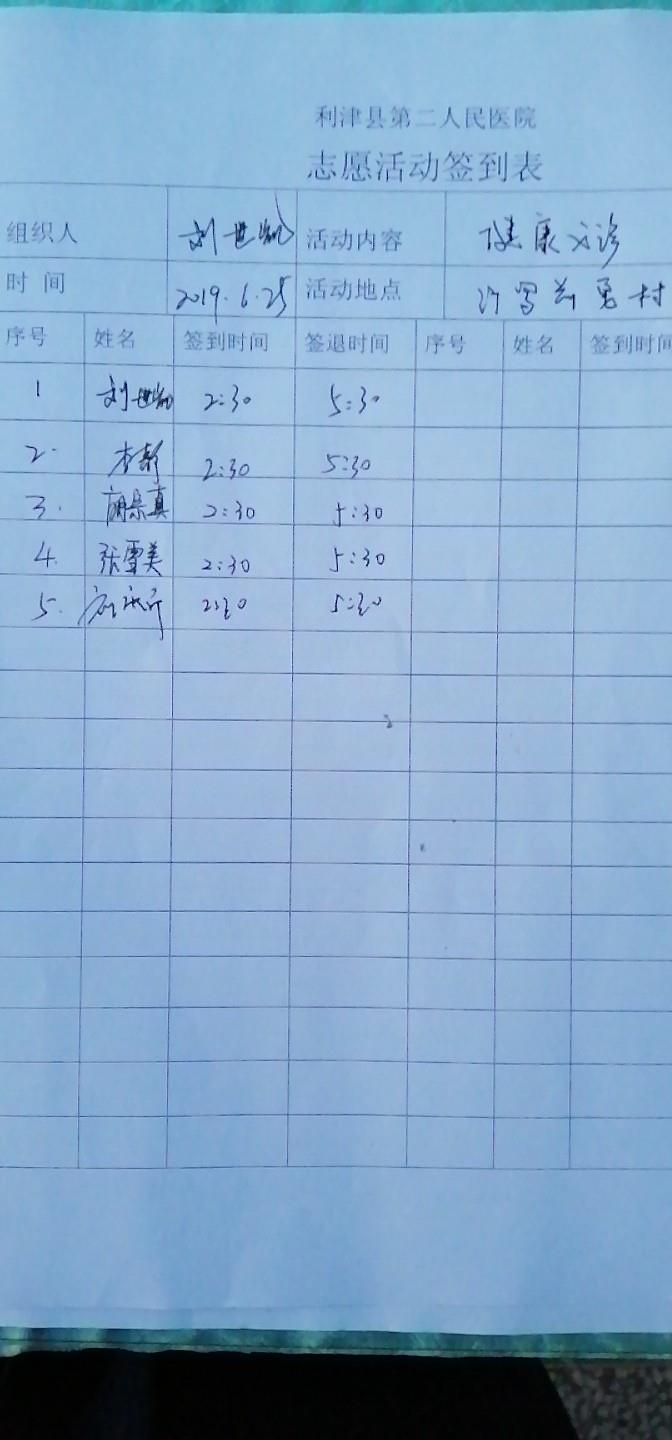 利津县第二人民医院
志愿活动签到表
组织人 刘世凯 活动内容 健康义诊
时 间 2019.6.25 活动地点 村
序号 姓名 签到时间 签退时间 序号 姓名 签到时间
1 刘世凯 2:30 5:30
2. 2:30 5:30
3. 胡景真 2:30 5:30
4. 张雪美 2:30 5:30
5. 2:30 5:30